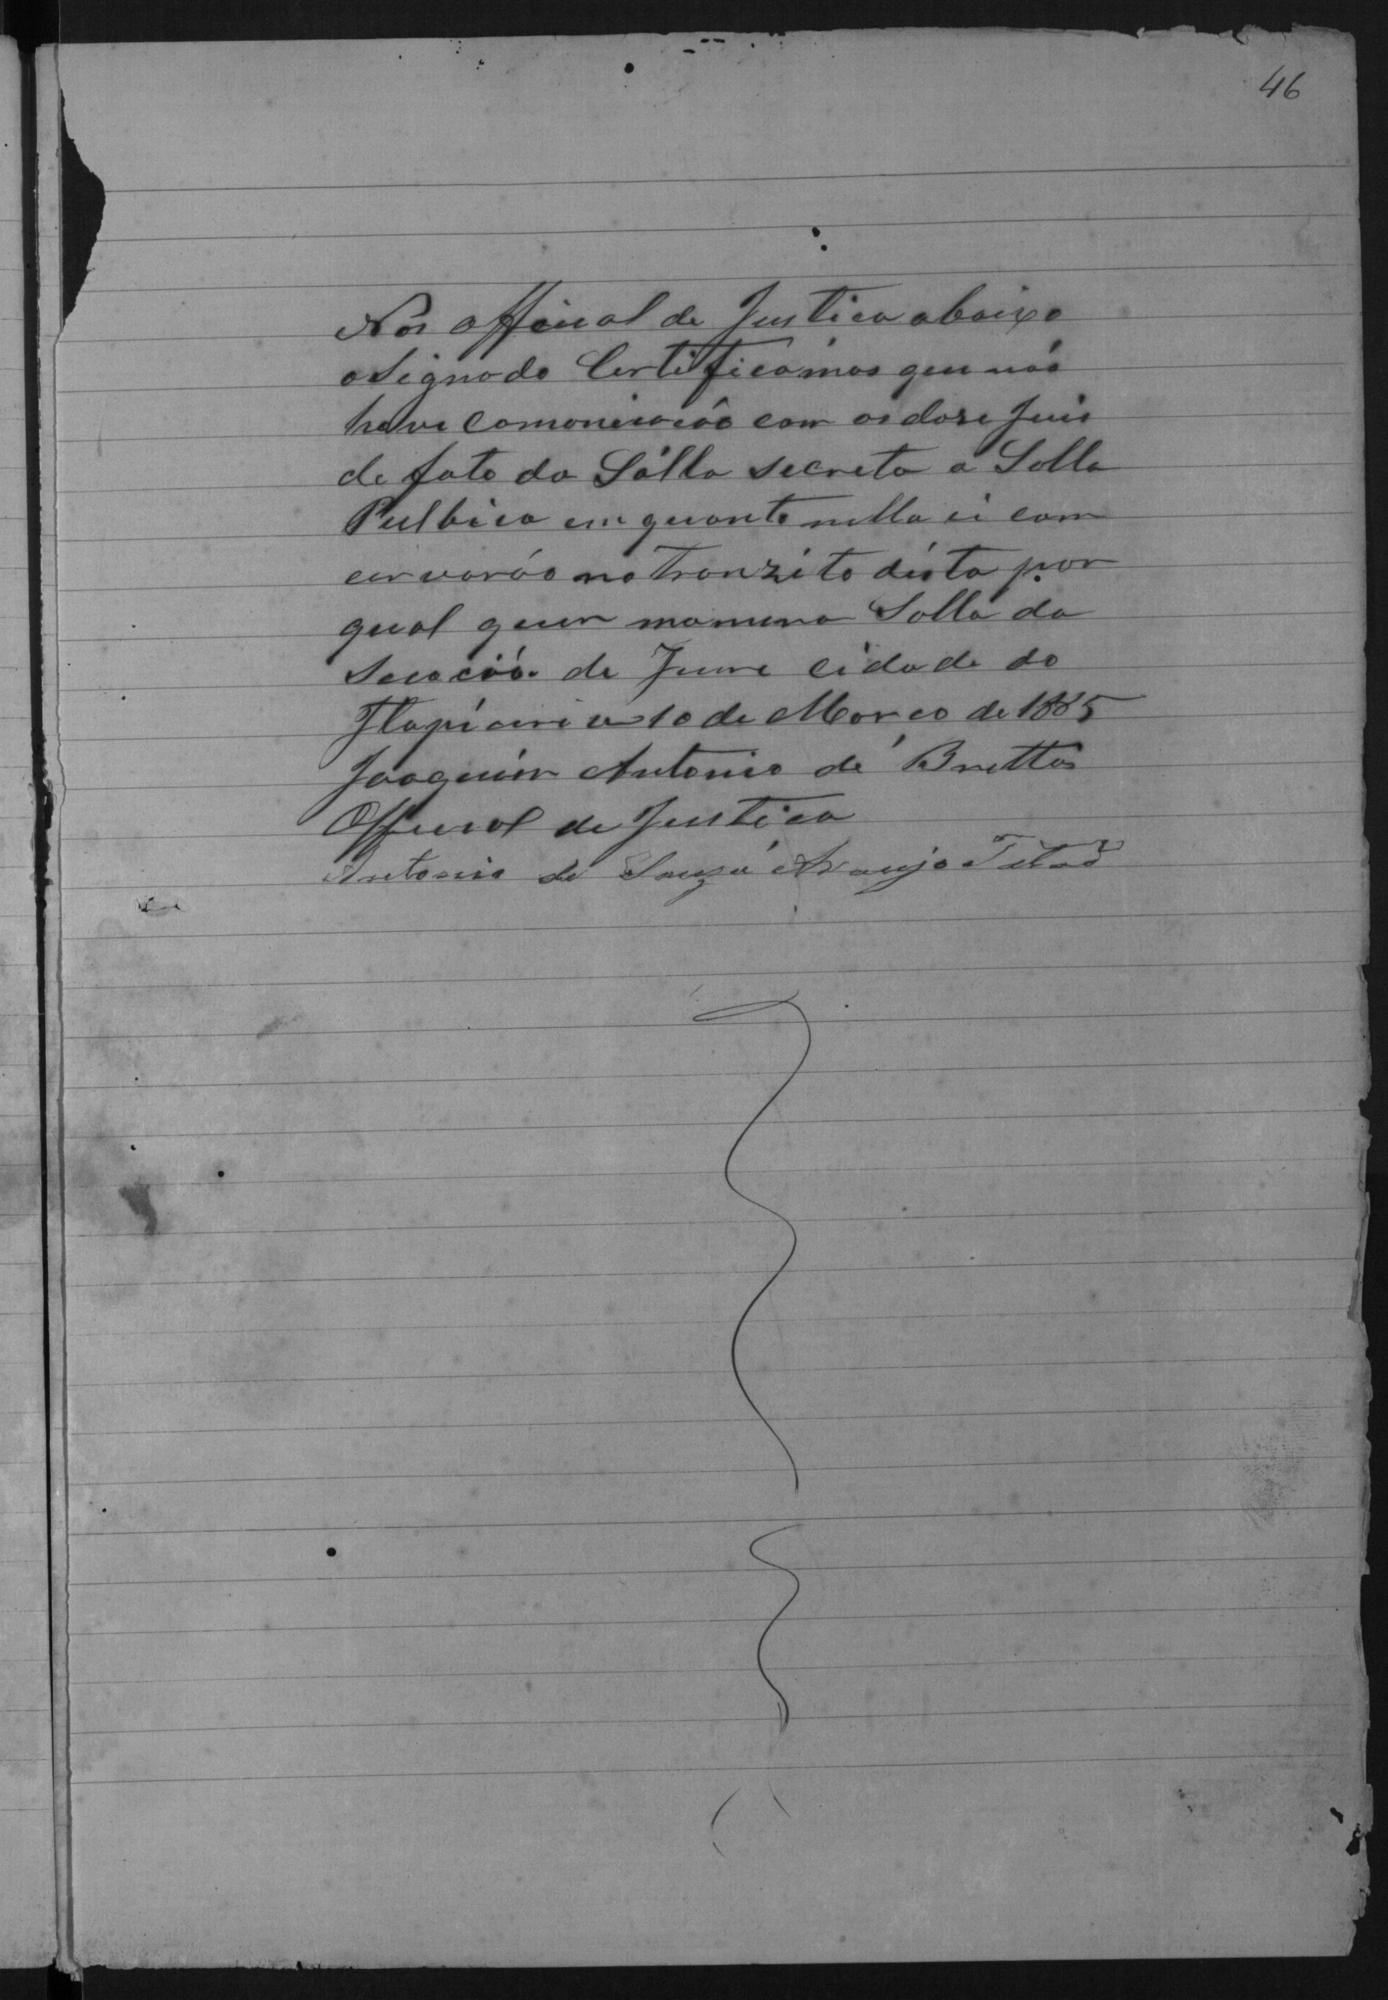 46
Nos official de Justica abaixo
asignado Certificamos que não
heve comonicacão com os doze Juis
de fato da Sálla secreta a Salla
Pulbica em quanto nella ci com
carvarão no Tranzito désta por
qual quer manera Salla da
de Jure cidade do
10 de Marco de 1885
Joaquim Antonio de Brittos
Official de Justica
Antonio de Souza Araujo